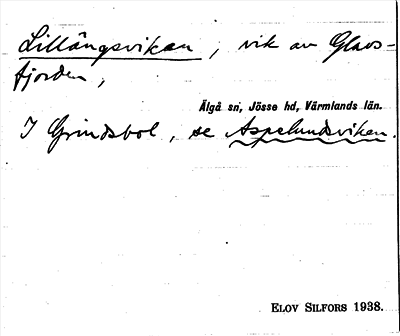 Lillängsvikan, vik av Glavs-
fjorden,
Älgå sn, Jösse hd, Värmlands län.
I Grindsbol, se Aspelundsviken.
ELOV SILFORS 1938.